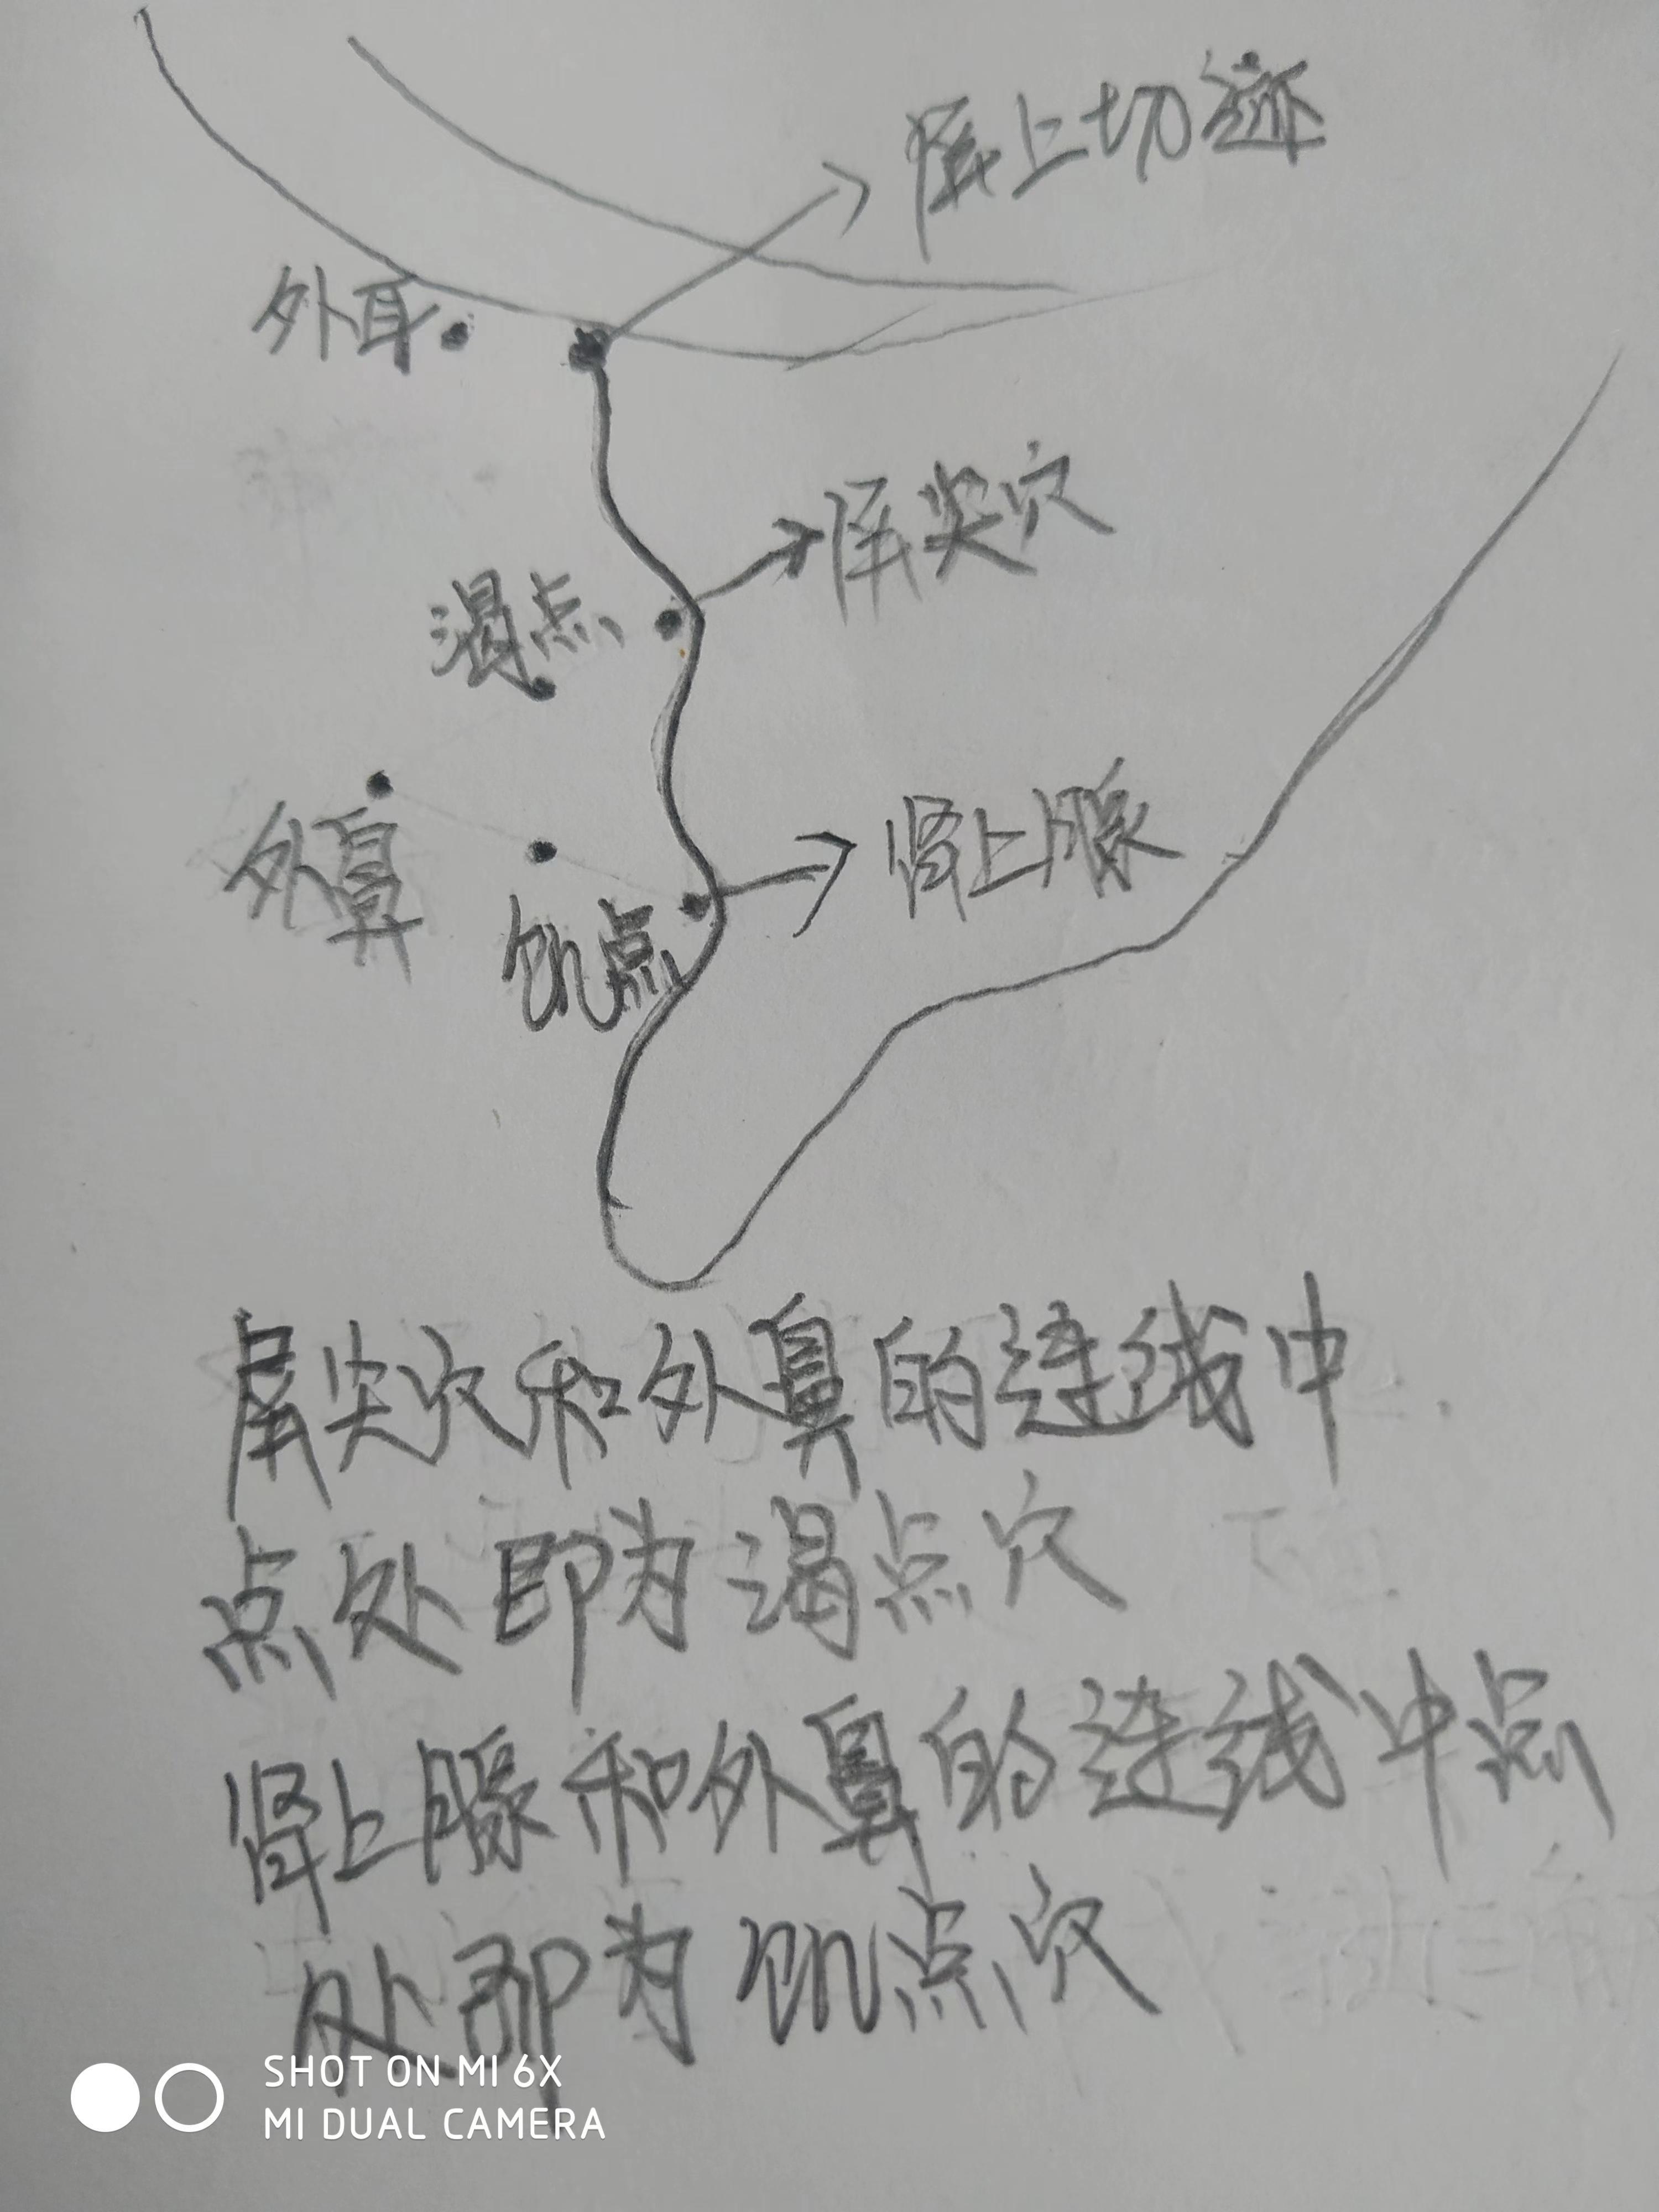 屏上切迹
外耳
屏尖穴
渴点
外鼻
肾上腺
饥点
屏尖穴和外鼻的连线中
点处即为渴点穴
肾上腺和外鼻的连线中点
处即为饥点穴
SHOT ON MI 6X
MI DUAL CAMERA